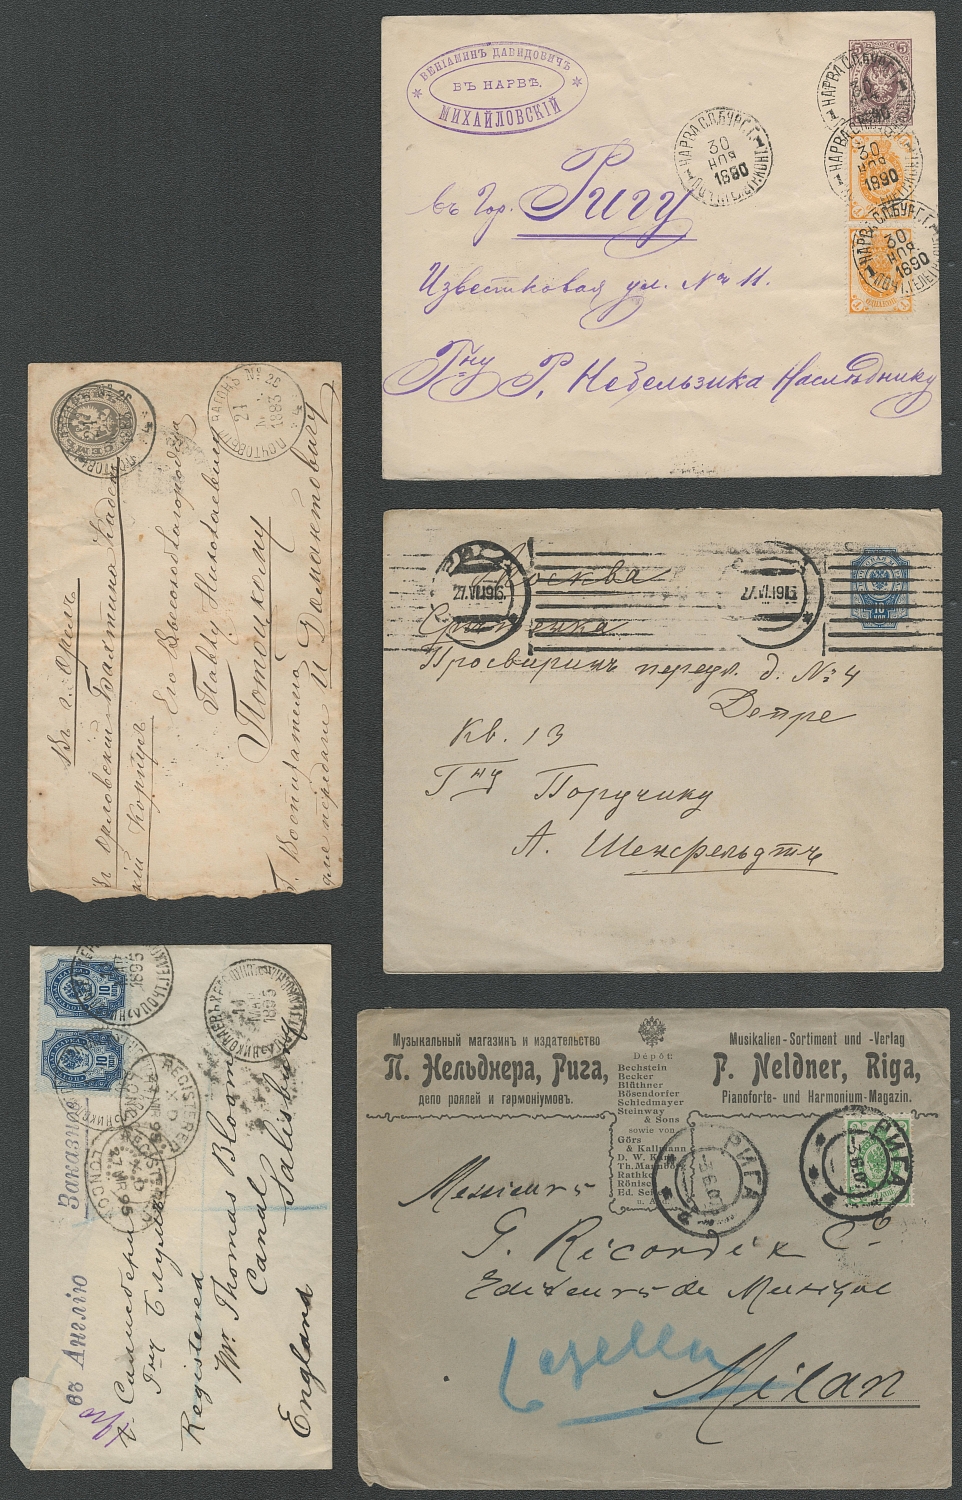 ВЕНIАМИНЪ ДАВИДОВИЧЪ
ВЪ НАРВѢ.
МИХАЙЛОВСКIЙ
5 5
НАРВА С.П.БУРГ.Г.
30
НОЯ
1890
НАРВА
30
НОЯ
1890
НАРВА С.П.БУРГ.Г.
30
НОЯ
1890
въ Гор. Ригу
Известковая ул. № 11.
Гну Р. Небельзика Наслѣднику
ПОЧТОВЫЙ ВАГОНЪ № 26
21
1883
4
Въ г. Орелъ
Въ Орловскiй Бахтина Кадет
скiй Корпусъ
Его Высокоблагородiю
Павлу Николаевичу
Потоцкому
Г. Воспитателю
27.VI.1916
27.VI.1916
10
Москва
Срѣтенка
Просвиринъ переул. д. № 4
Депре
Кв. 13
Гну Поручику
А. Шенфельдтъ
10
10
1895
1895
REGISTERED
LONDON
Заказное
въ Англiю
Гну Блумъ
Registered
Mr. Thomas Bloom
Canal Salisbury
England
Музыкальный магазинъ и издательство
П. Нельднера, Рига,
депо роялей и гармонiумовъ.
Dépôt:
Bechstein
Becker
Blüthner
Bösendorfer
Schiedmayer
Steinway
& Sons
sowie von
Görs
& Kallmann
D. W.
Th.
Rathke
Musikalien-Sortiment und -Verlag
P. Neldner, Riga,
Pianoforte- und Harmonium-Magazin.
РИГА
РИГА
Messieurs
G. Ricordi & Co
Editeurs de Musique
Milan